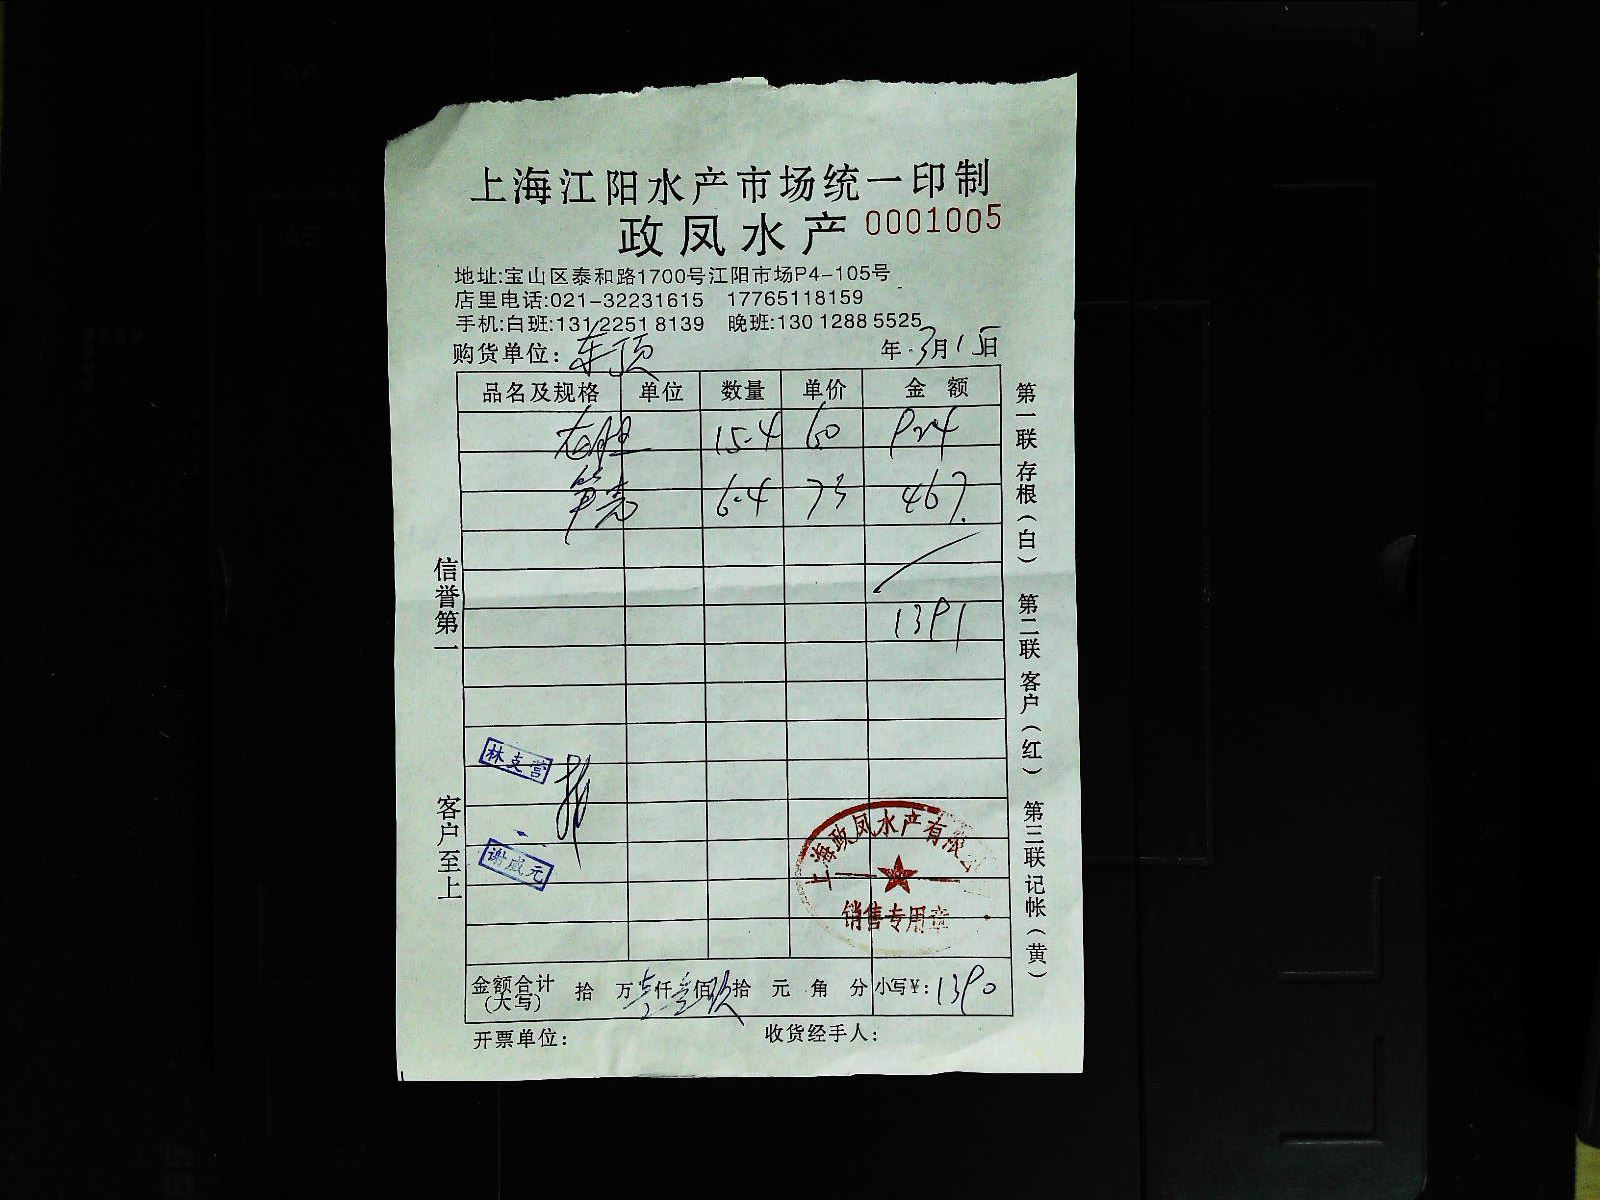 上海江阳水产市场统一印制
政凤水产 0001005
地址:宝山区泰和路1700号江阳市场P4-105号
店里电话:021-32231615 17765118159
手机:白班:131 2251 8139 晚班:130 1288 5525
购货单位: 年 3月15日
品名及规格 单位 数量 单价 金额
龙胆 15.4 60 924
笋壳 6.4 73 467.
1391
信誉第一
客户至上
林支营
谢咸元
上海政凤水产有限公司
销售专用章
金额合计(大写) 拾 万 壹仟 叁佰 玖拾 元 角 分 小写¥: 1390
开票单位: 收货经手人:
第一联 存根(白) 第二联 客户(红) 第三联 记帐(黄)